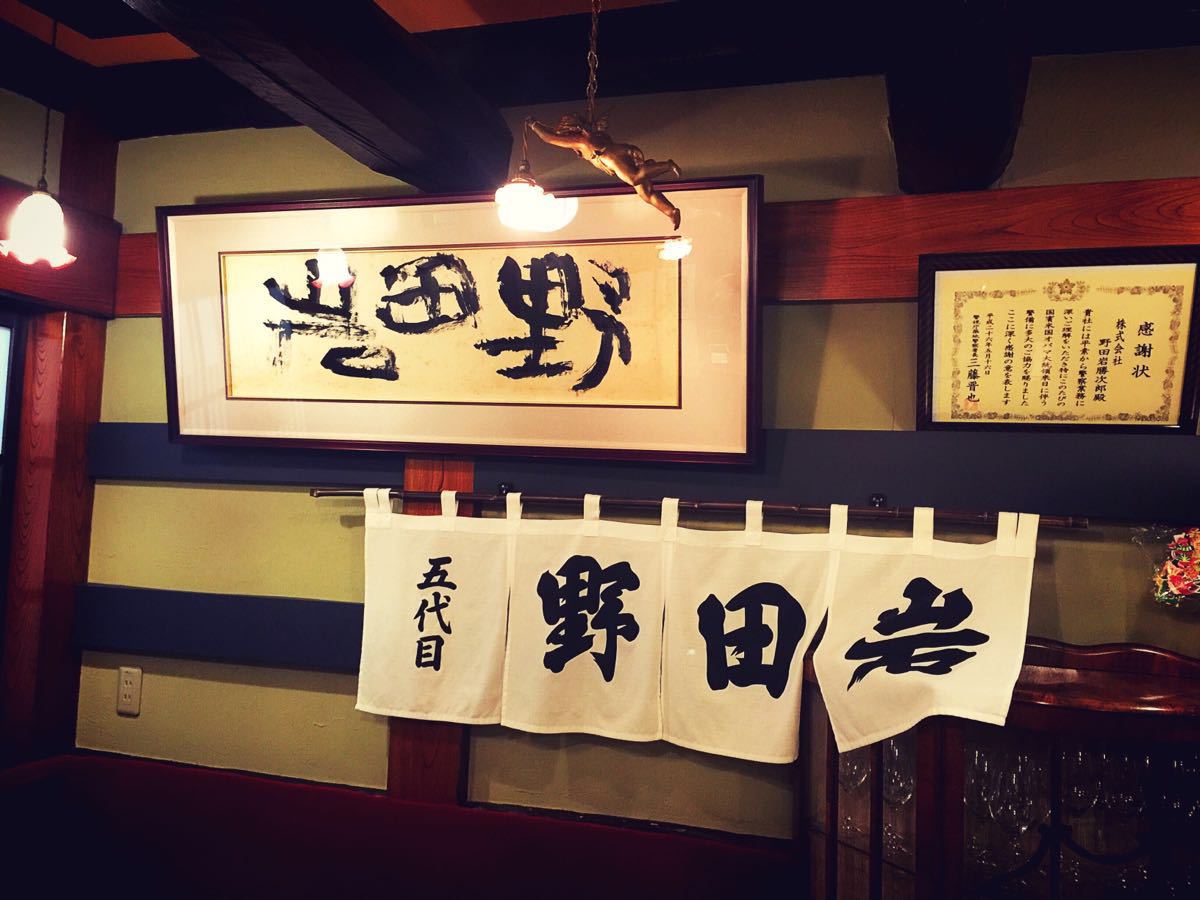 野田岩
五代目
野田岩
感謝状
株式会社
野田岩勝次郎殿
貴社には平素から警察業務に
深いご理解をいただき特にこのたびの
国賓米国オバマ大統領来日に伴う
警備に多大のご協力を賜りました
ここに深く感謝の意を表します
平成二十六年五月十六日
警視庁築地警察署長三藤晋也